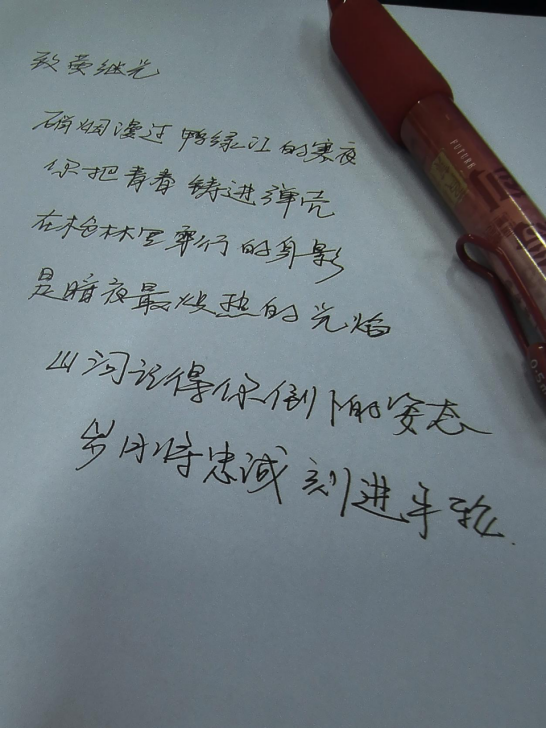 致黄继光
硝烟漫过鸭绿江的寒夜
你把青春铸进弹壳
在枪林里穿行的身影
是暗夜最焕热的光焰
山河记得你倒下的姿态
岁月将忠诚刻进年轮.
FUTURE